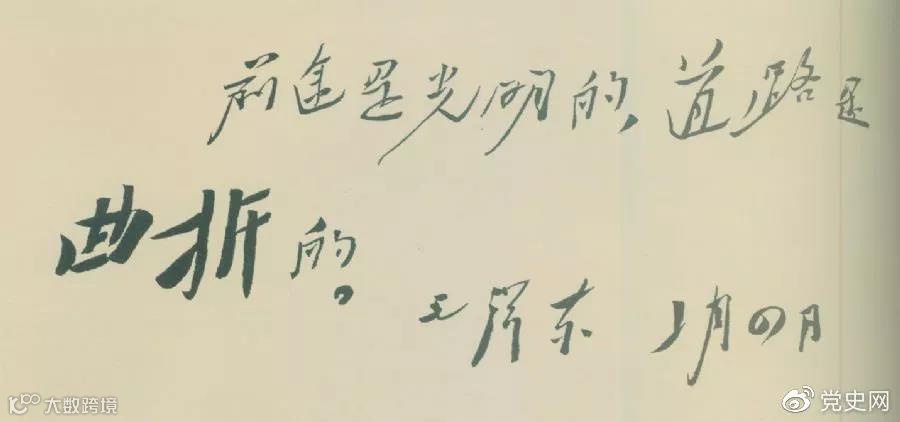 前途是光明的，道路是
曲折的。
毛泽东
大数跨境
党史网